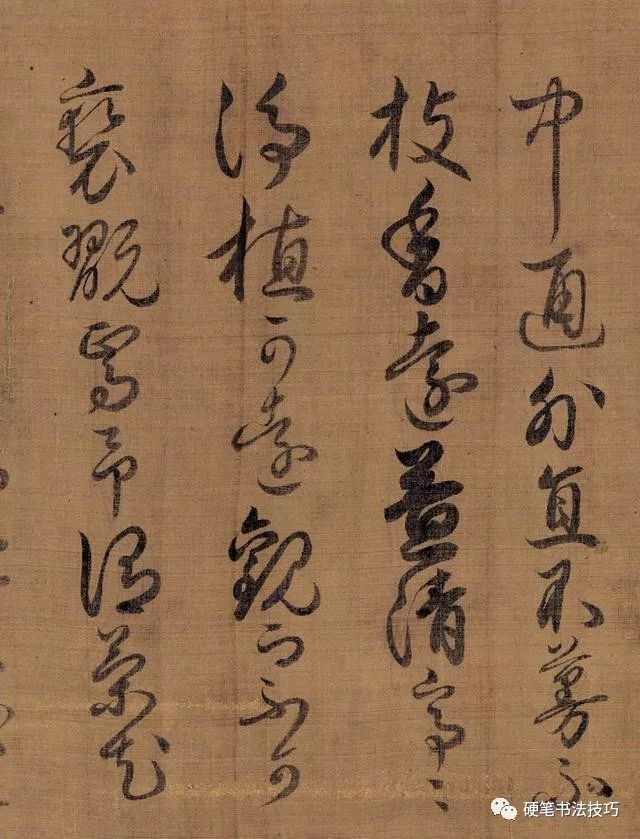 中通外直不蔓不
枝香遠益清亭〻
淨植可遠觀而不可
褻翫焉予謂菊花
硬笔书法技巧